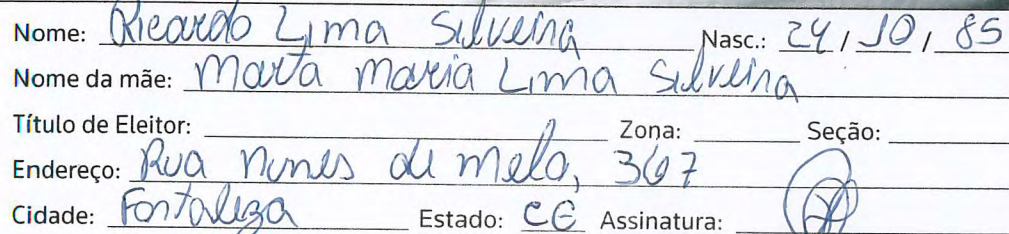 Nome: Ricardo Lima Silveira Nasc.: 24 / 10 / 85
Nome da mãe: Marta Maria Lima Silveira
Título de Eleitor: Zona: Seção:
Endereço: Rua Nunes de Melo, 367
Cidade: Fortaleza Estado: CE Assinatura: